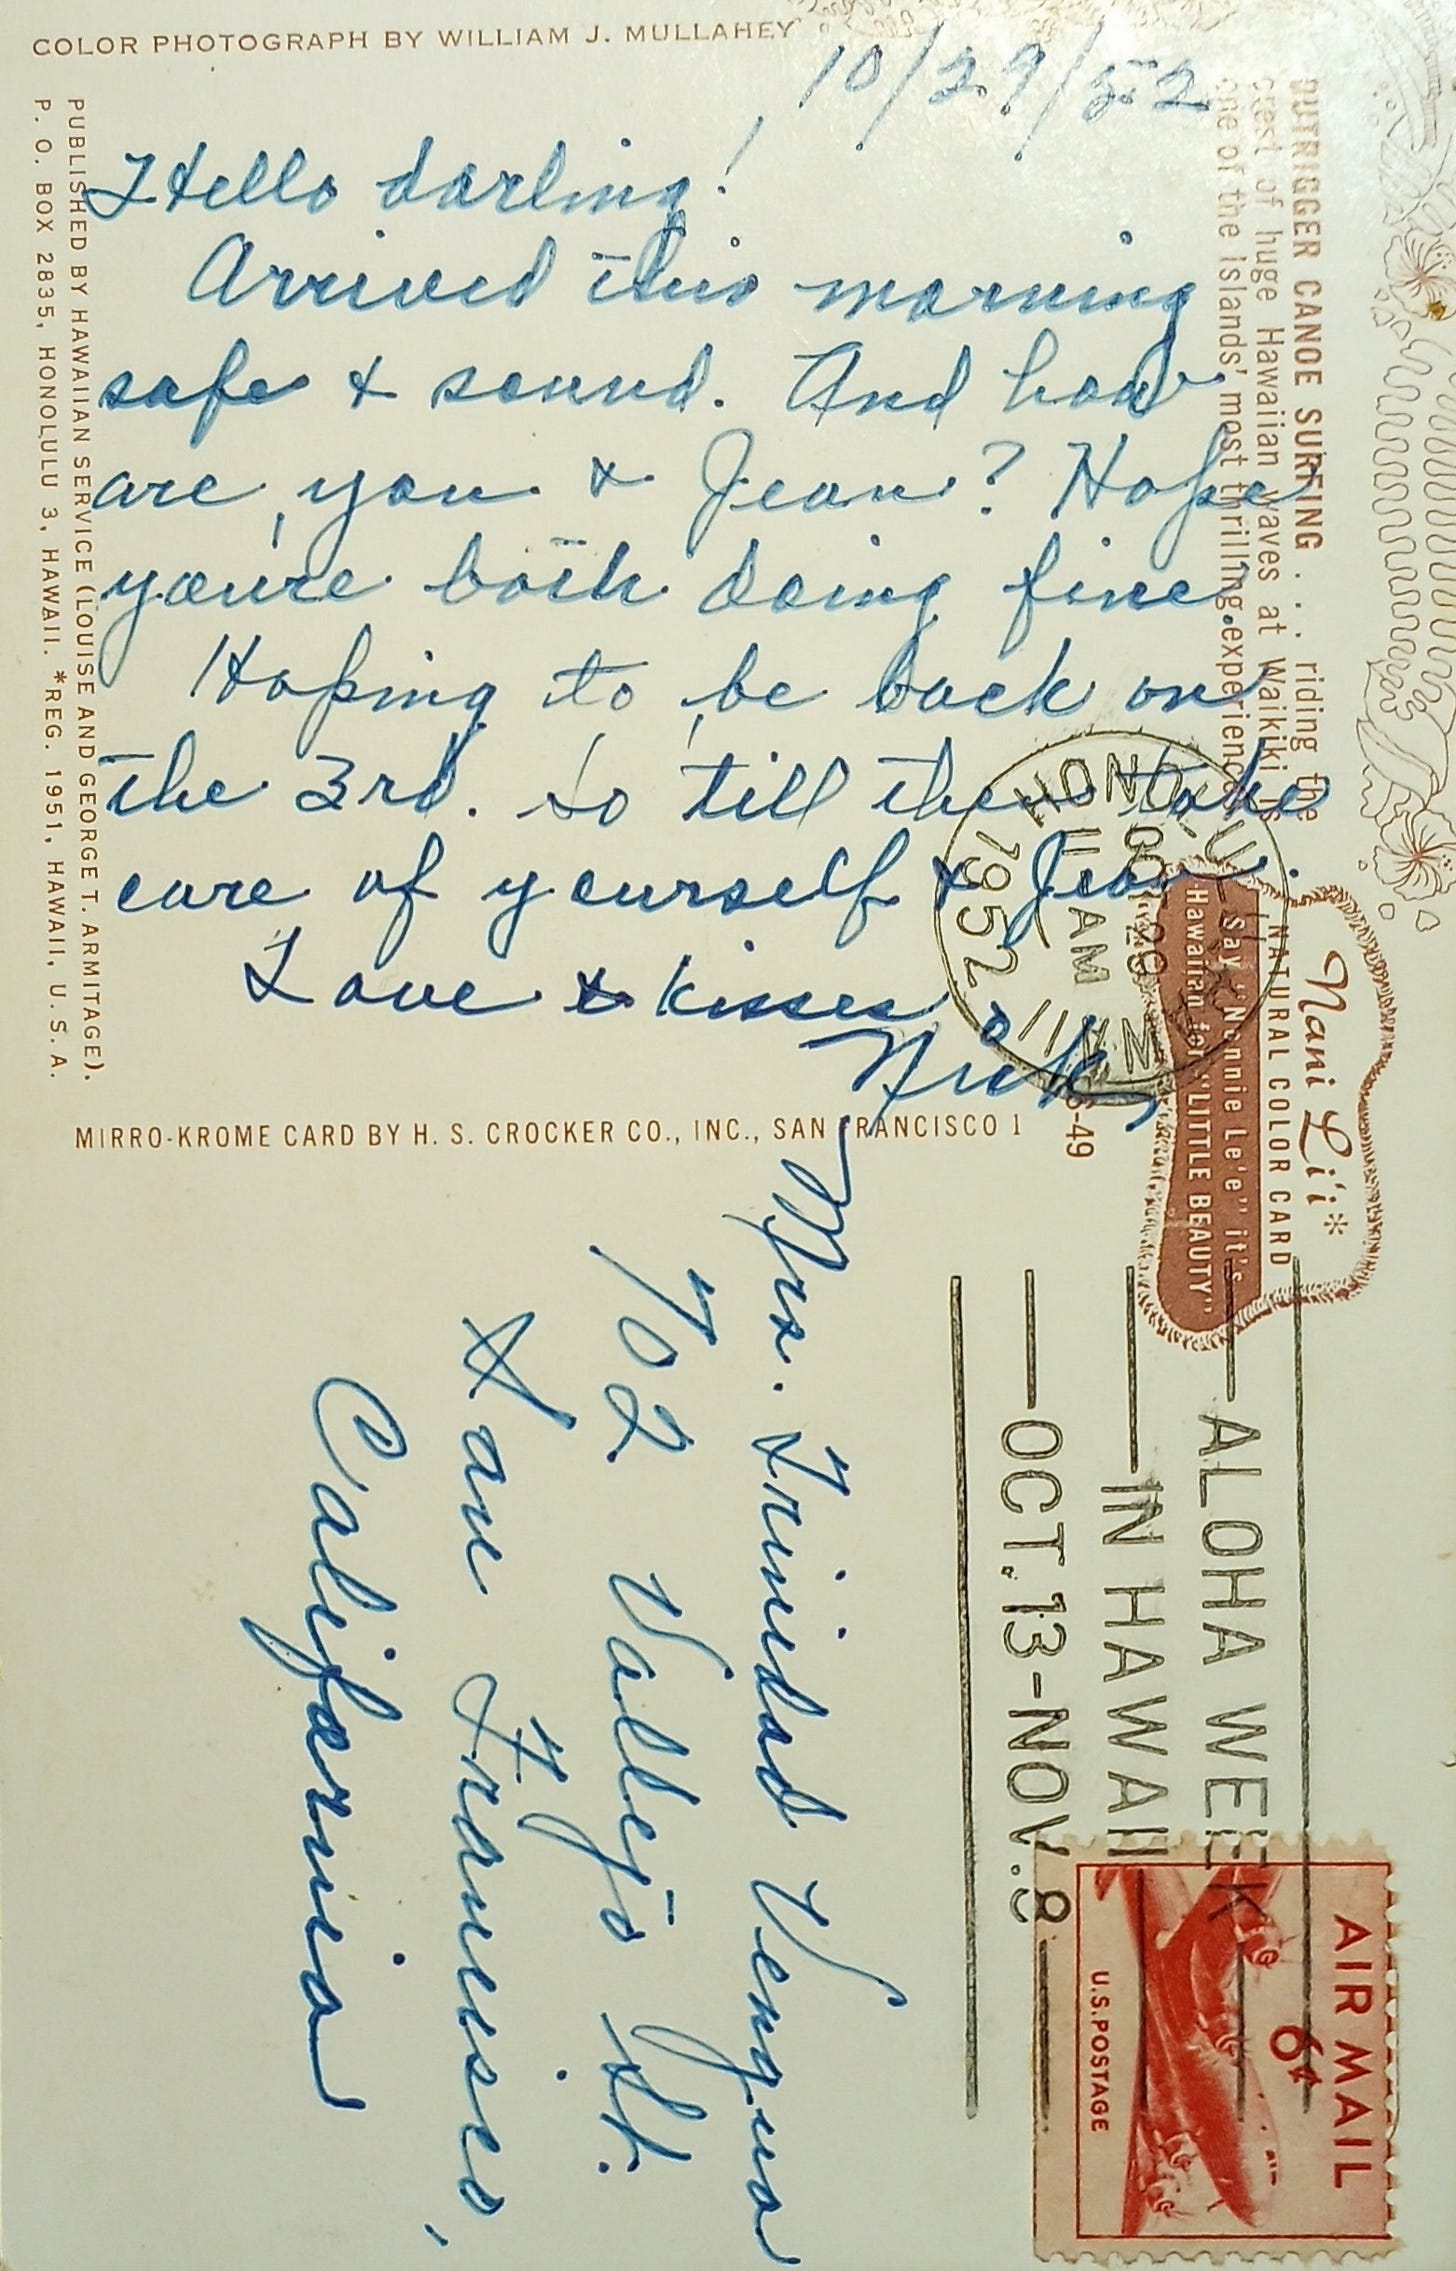 COLOR PHOTOGRAPH BY WILLIAM J. MULLAHEY
10/29/52
Hello darling!
Arrived this morning
safe & sound. And how
are you & Jean? Hope
you're both doing fine.
Hoping to be back on
the 3rd. So till then take
care of yourself & Jean.
Love & kisses
Nick
PUBLISHED BY HAWAIIAN SERVICE (LOUISE AND GEORGE T. ARMITAGE).
P. O. BOX 2835, HONOLULU 3, HAWAII. *REG. 1951, HAWAII, U. S. A.
MIRRO-KROME CARD BY H. S. CROCKER CO., INC., SAN FRANCISCO 1
OUTRIGGER CANOE SURFING . . . riding the
crest of huge Hawaiian waves at Waikiki is
one of the islands' most thrilling experiences.
Nani Li'i*
NATURAL COLOR CARD
Say "Nannie Le'e" it's
Hawaiian for "LITTLE BEAUTY"
HONOLULU
OCT 29
11 AM
1952
ALOHA WEEK
IN HAWAII
OCT. 13-NOV. 8
AIR MAIL
6¢
U.S. POSTAGE
Mrs. Trinidad Vengua
702 Vallejo St.
San Francisco,
California